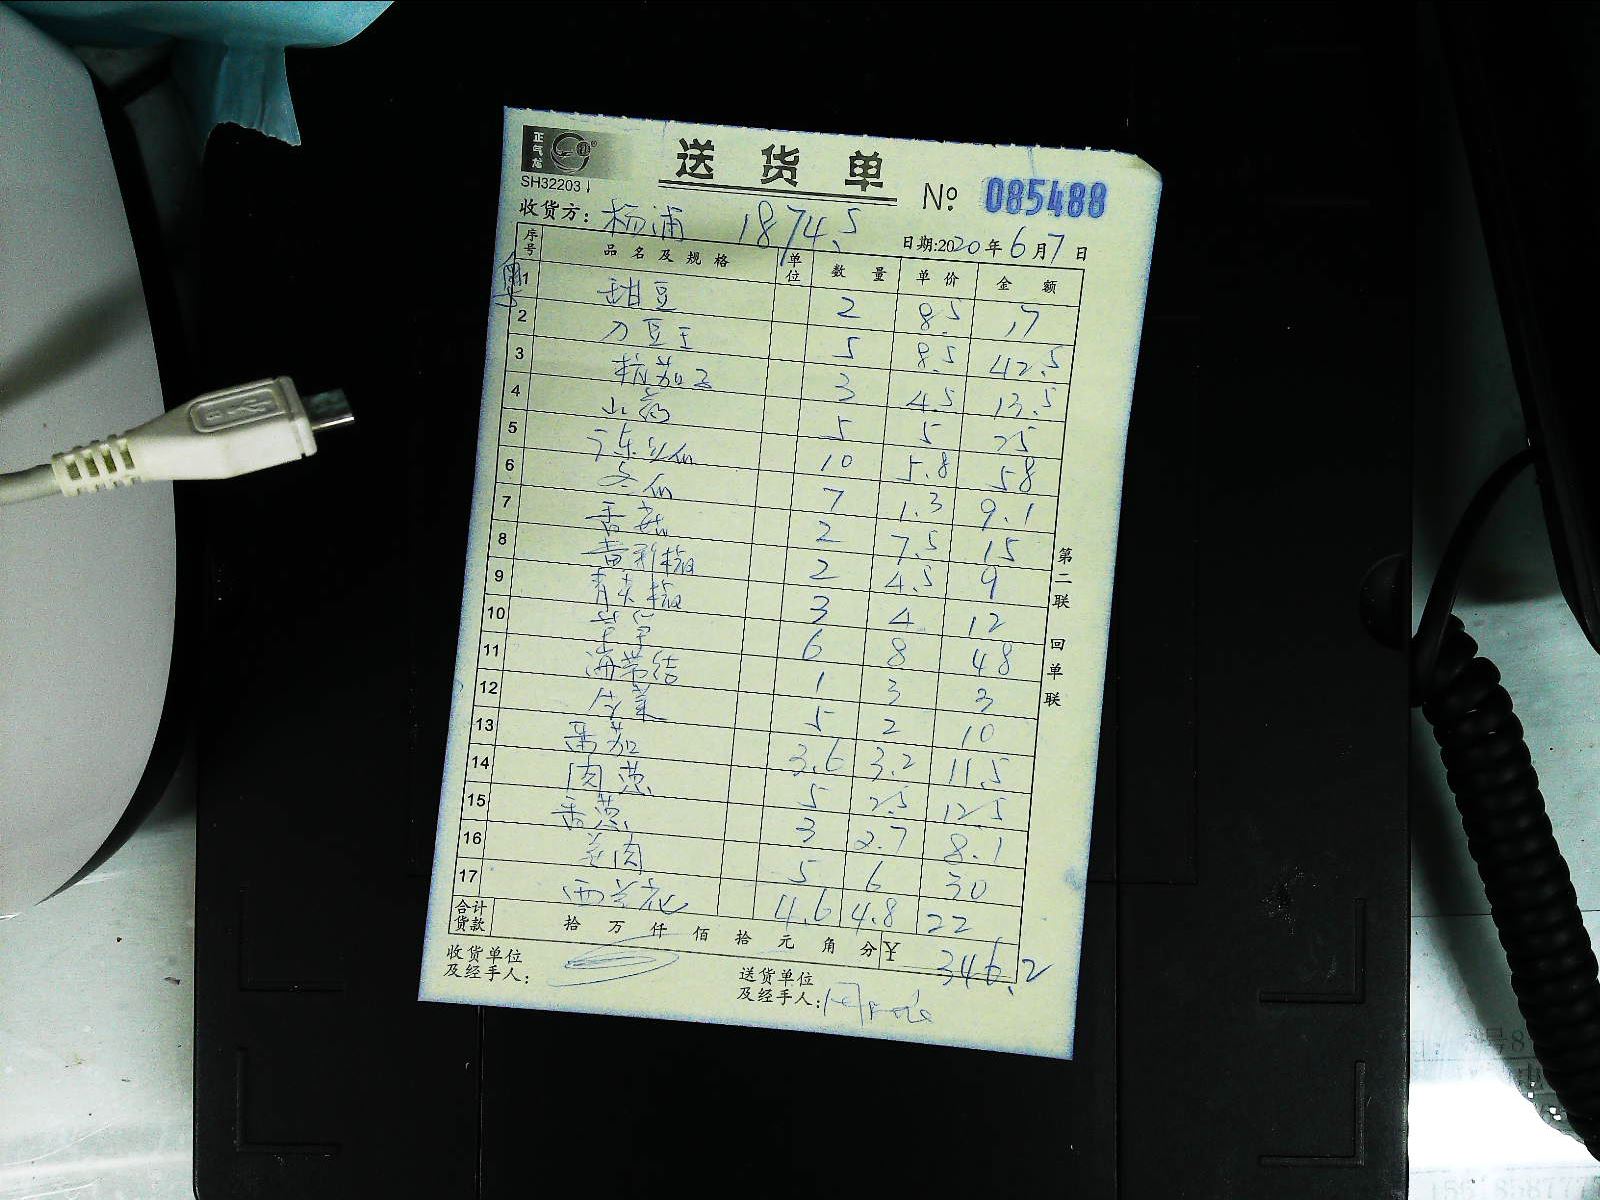 正气龙
送货单
SH32203
№ 085488
收货方: 杨浦 1874.5
日期:2020年6月7日
序号 品名及规格 单位 数量 单价 金额
1 甜豆 2 8.5 17
2 刀豆王 5 8.5 42.5
3 杭茄子 3 4.5 13.5
4 山药 5 5 25
5 广东丝瓜 10 5.8 58
6 冬瓜 7 1.3 9.1
7 香菇 2 7.5 15
8 青彩椒 2 4.5 9
9 青尖椒 3 4 12
10 6 8 48
11 海带结 1 3 3
12 5 2 10
13 番茄 3.6 3.2 11.5
14 肉葱 5 2.5 12.5
15 香葱 3 2.7 8.1
16 姜肉 5 6 30
17 西兰花 4.6 4.8 22
合计货款 拾万仟佰拾元角分 ¥ 346.2
收货单位及经手人:
送货单位及经手人:
第二联 回单联